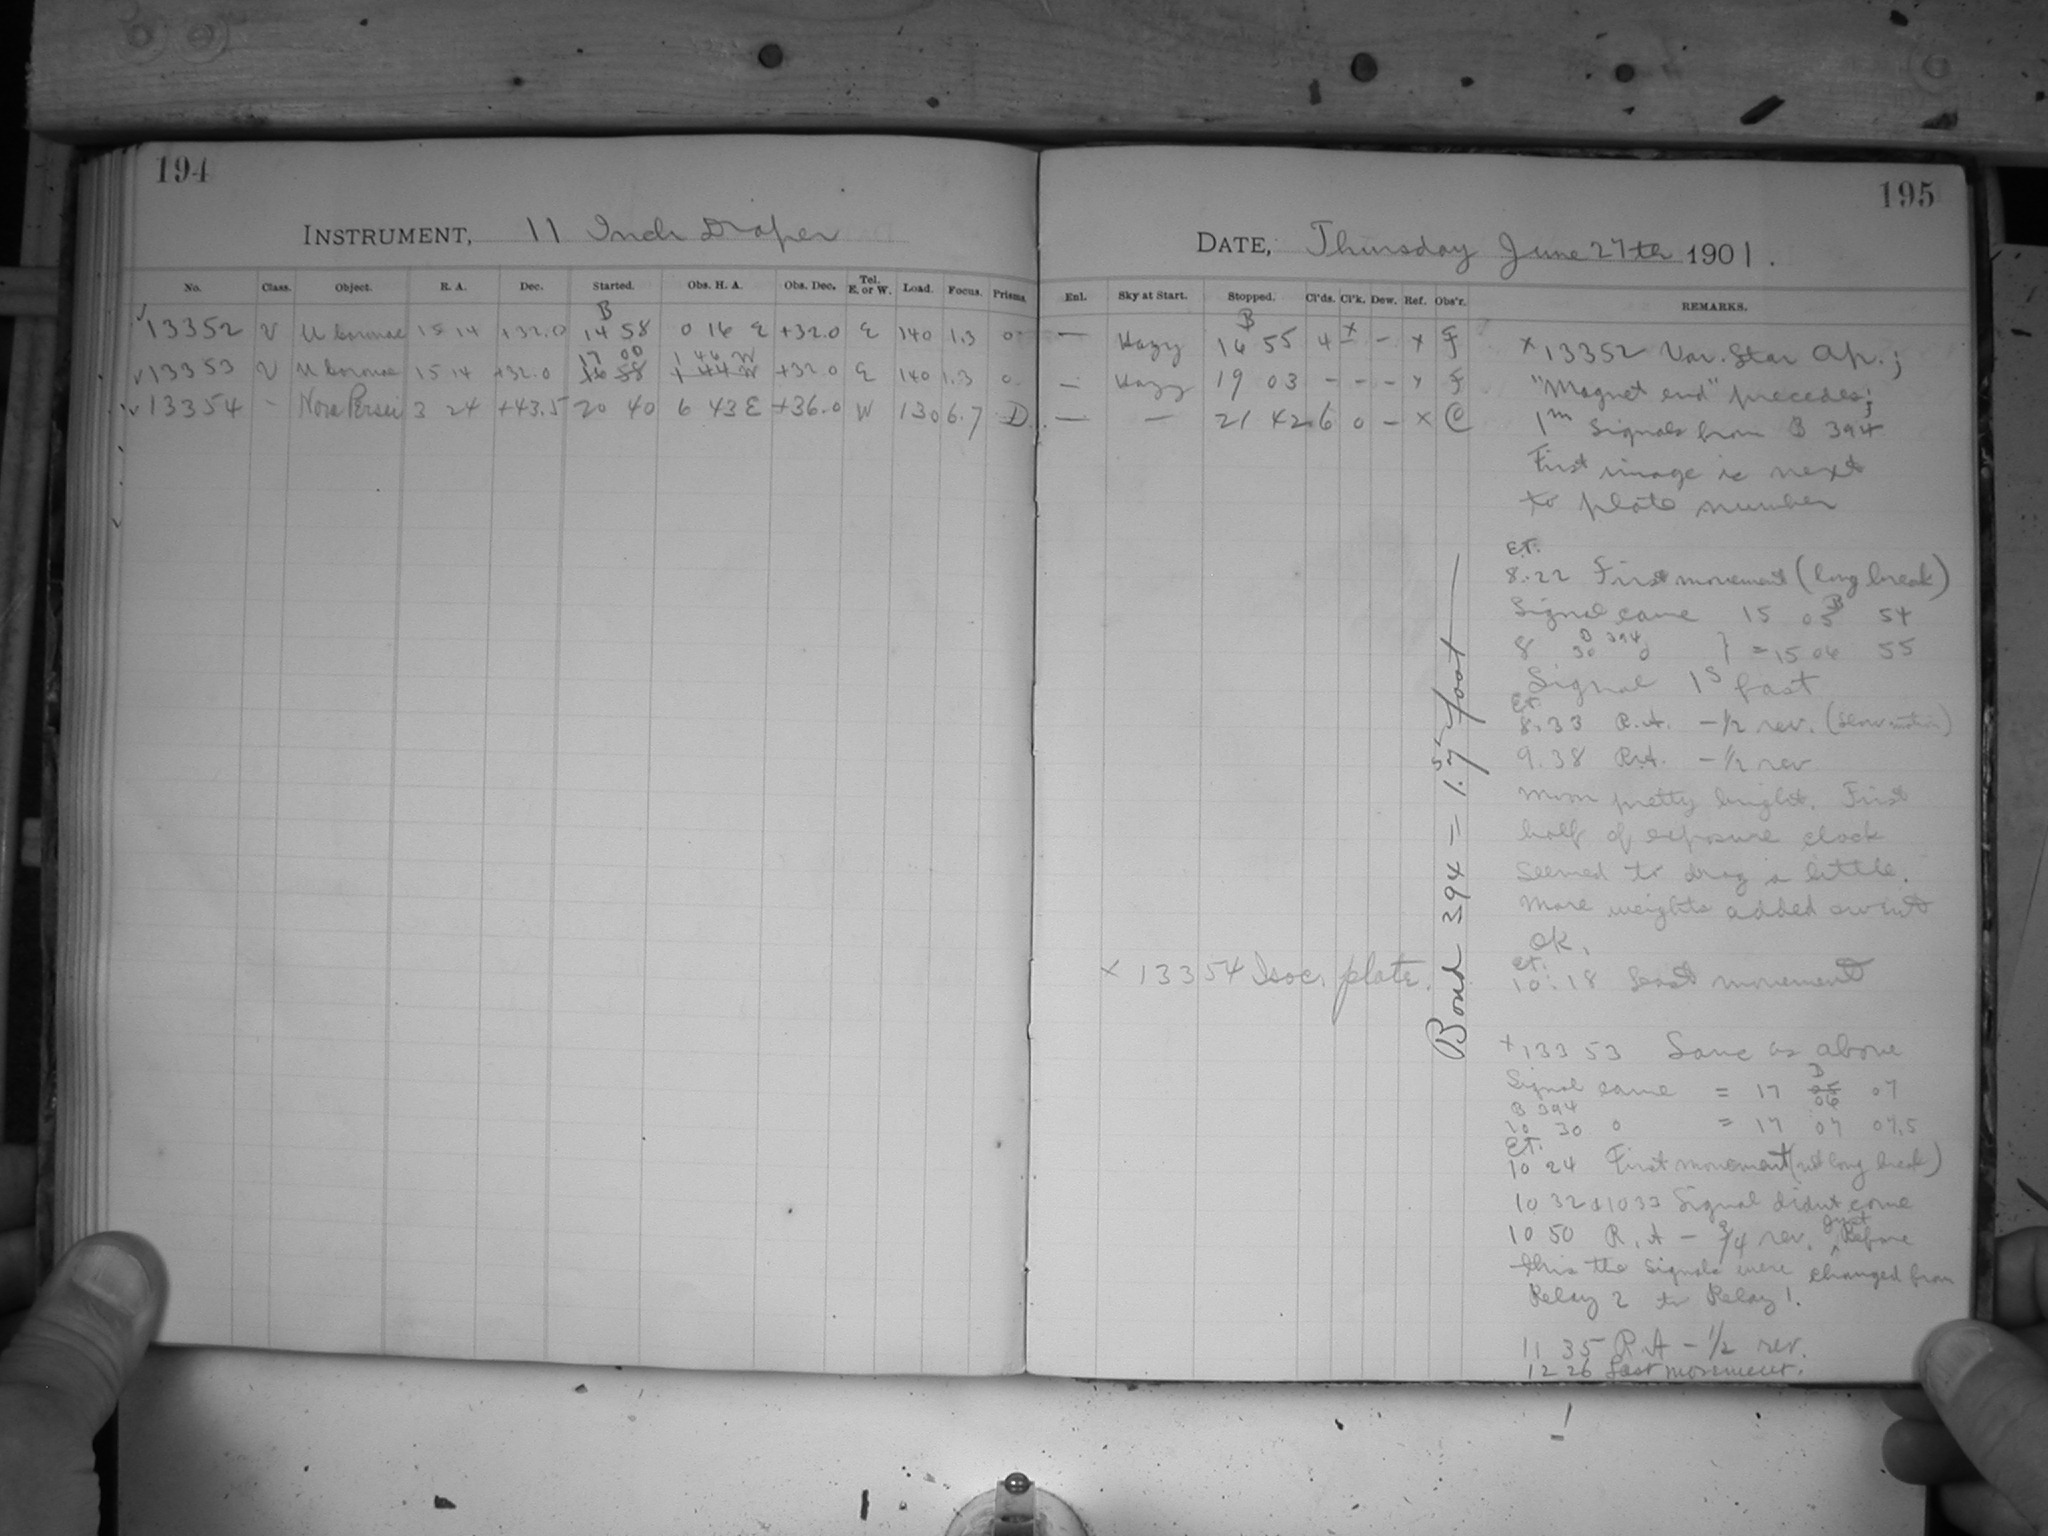 194
INSTRUMENT, 11 Inch Draper
No. Class. Object. R. A. Dec. Started. Obs. H. A. Obs. Dec. Tel. E. or W. Load. Focus. Prisms.
B
13352 V U Coronae 15 14 +32.0 14 58 0 16 E +32.0 E 140 1.3 0
17 00 1 46 W
13353 V U Coronae 15 14 +32.0 16 58 1 44 W +32.0 E 140 1.3 0
13354 - Nova Persei 3 24 +43.5 20 40 6 43 E +36.0 W 130 6.7 D
195
DATE, Thursday June 27th 1901.
Enl. Sky at Start. Stopped. Cl'ds. Cl'k. Dew. Ref. Obs'r. REMARKS.
B
— Hazy 16 55 4 x - x F
— Hazy 19 03 - - - x F
— — 21 42.6 6 0 - x C
x 13352 Var. Star Ap.;
"Magnet end" precedes;
1m Signals from B 394
First image is next
to plate number
E.T.
8.22 First movement (long break)
Signal came 15 05 54
B
8 30 0 } = 15 06 55
B 394
Signal 1s fast
E.T.
8.33 R.A. - 1/2 rev. (slow motion)
9.38 R.A. - 1/2 rev.
Moon pretty bright. First
half of exposure clock
seemed to drag a little.
More weights added went
OK.
E.T.
10:18 Last movement
x 13353 Same as above
Signal came = 17 06 07
B
B 394
10 30 0 = 17 07 07.5
E.T.
10 24 First movement (not long break)
10 32 & 10 33 Signal didn't come
10 50 R.A - 3/4 rev. Just Before
this the signals were changed from
Relay 2 to Relay 1.
11 35 R.A - 1/2 rev.
12 26 Last movement.
x 13354 Isoc. plate.
Bond 394 = 1.7s fast